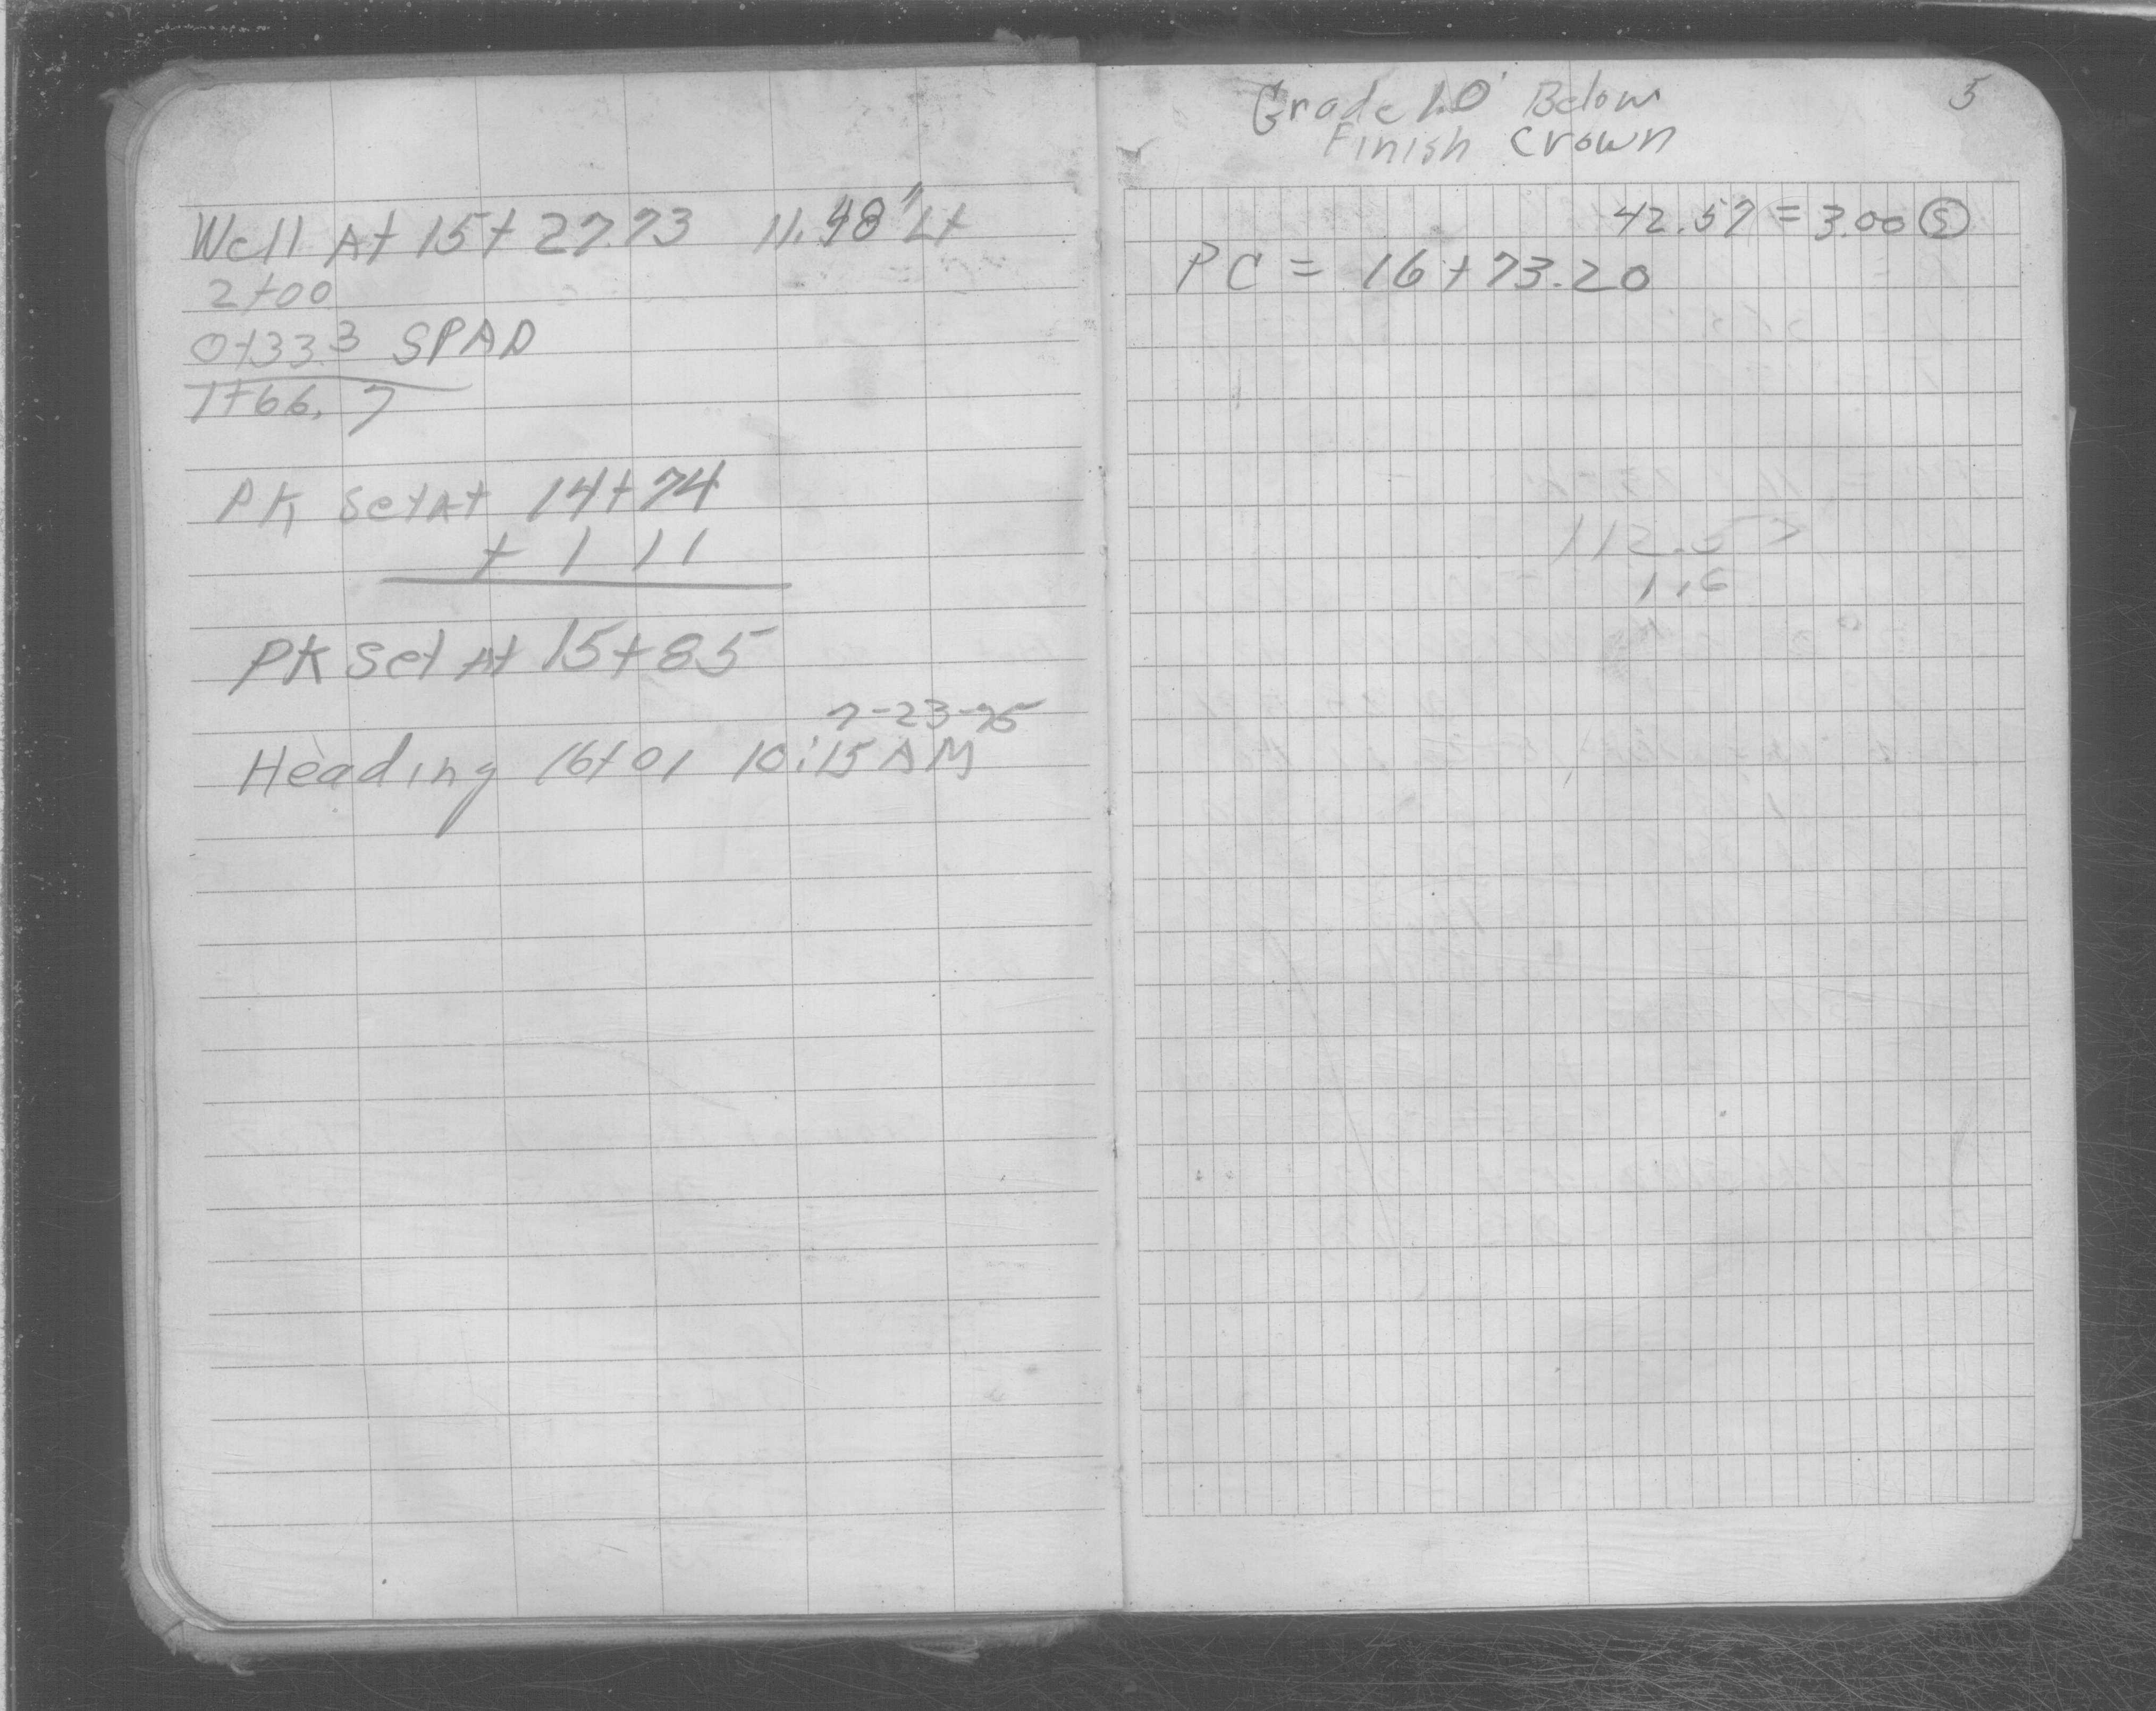 Well At 15+27.73 11.48' Lt
2+00
0+33.3 SPAD
1+66.7
PK Set At 14+74
+ 1 11
PK Set At 15+85
7-23-75
Heading 16+01 10:15 AM
5
Grade 1.0' Below
Finish Crown
42.57 = 3.00 (S)
PC = 16+73.20
1.6